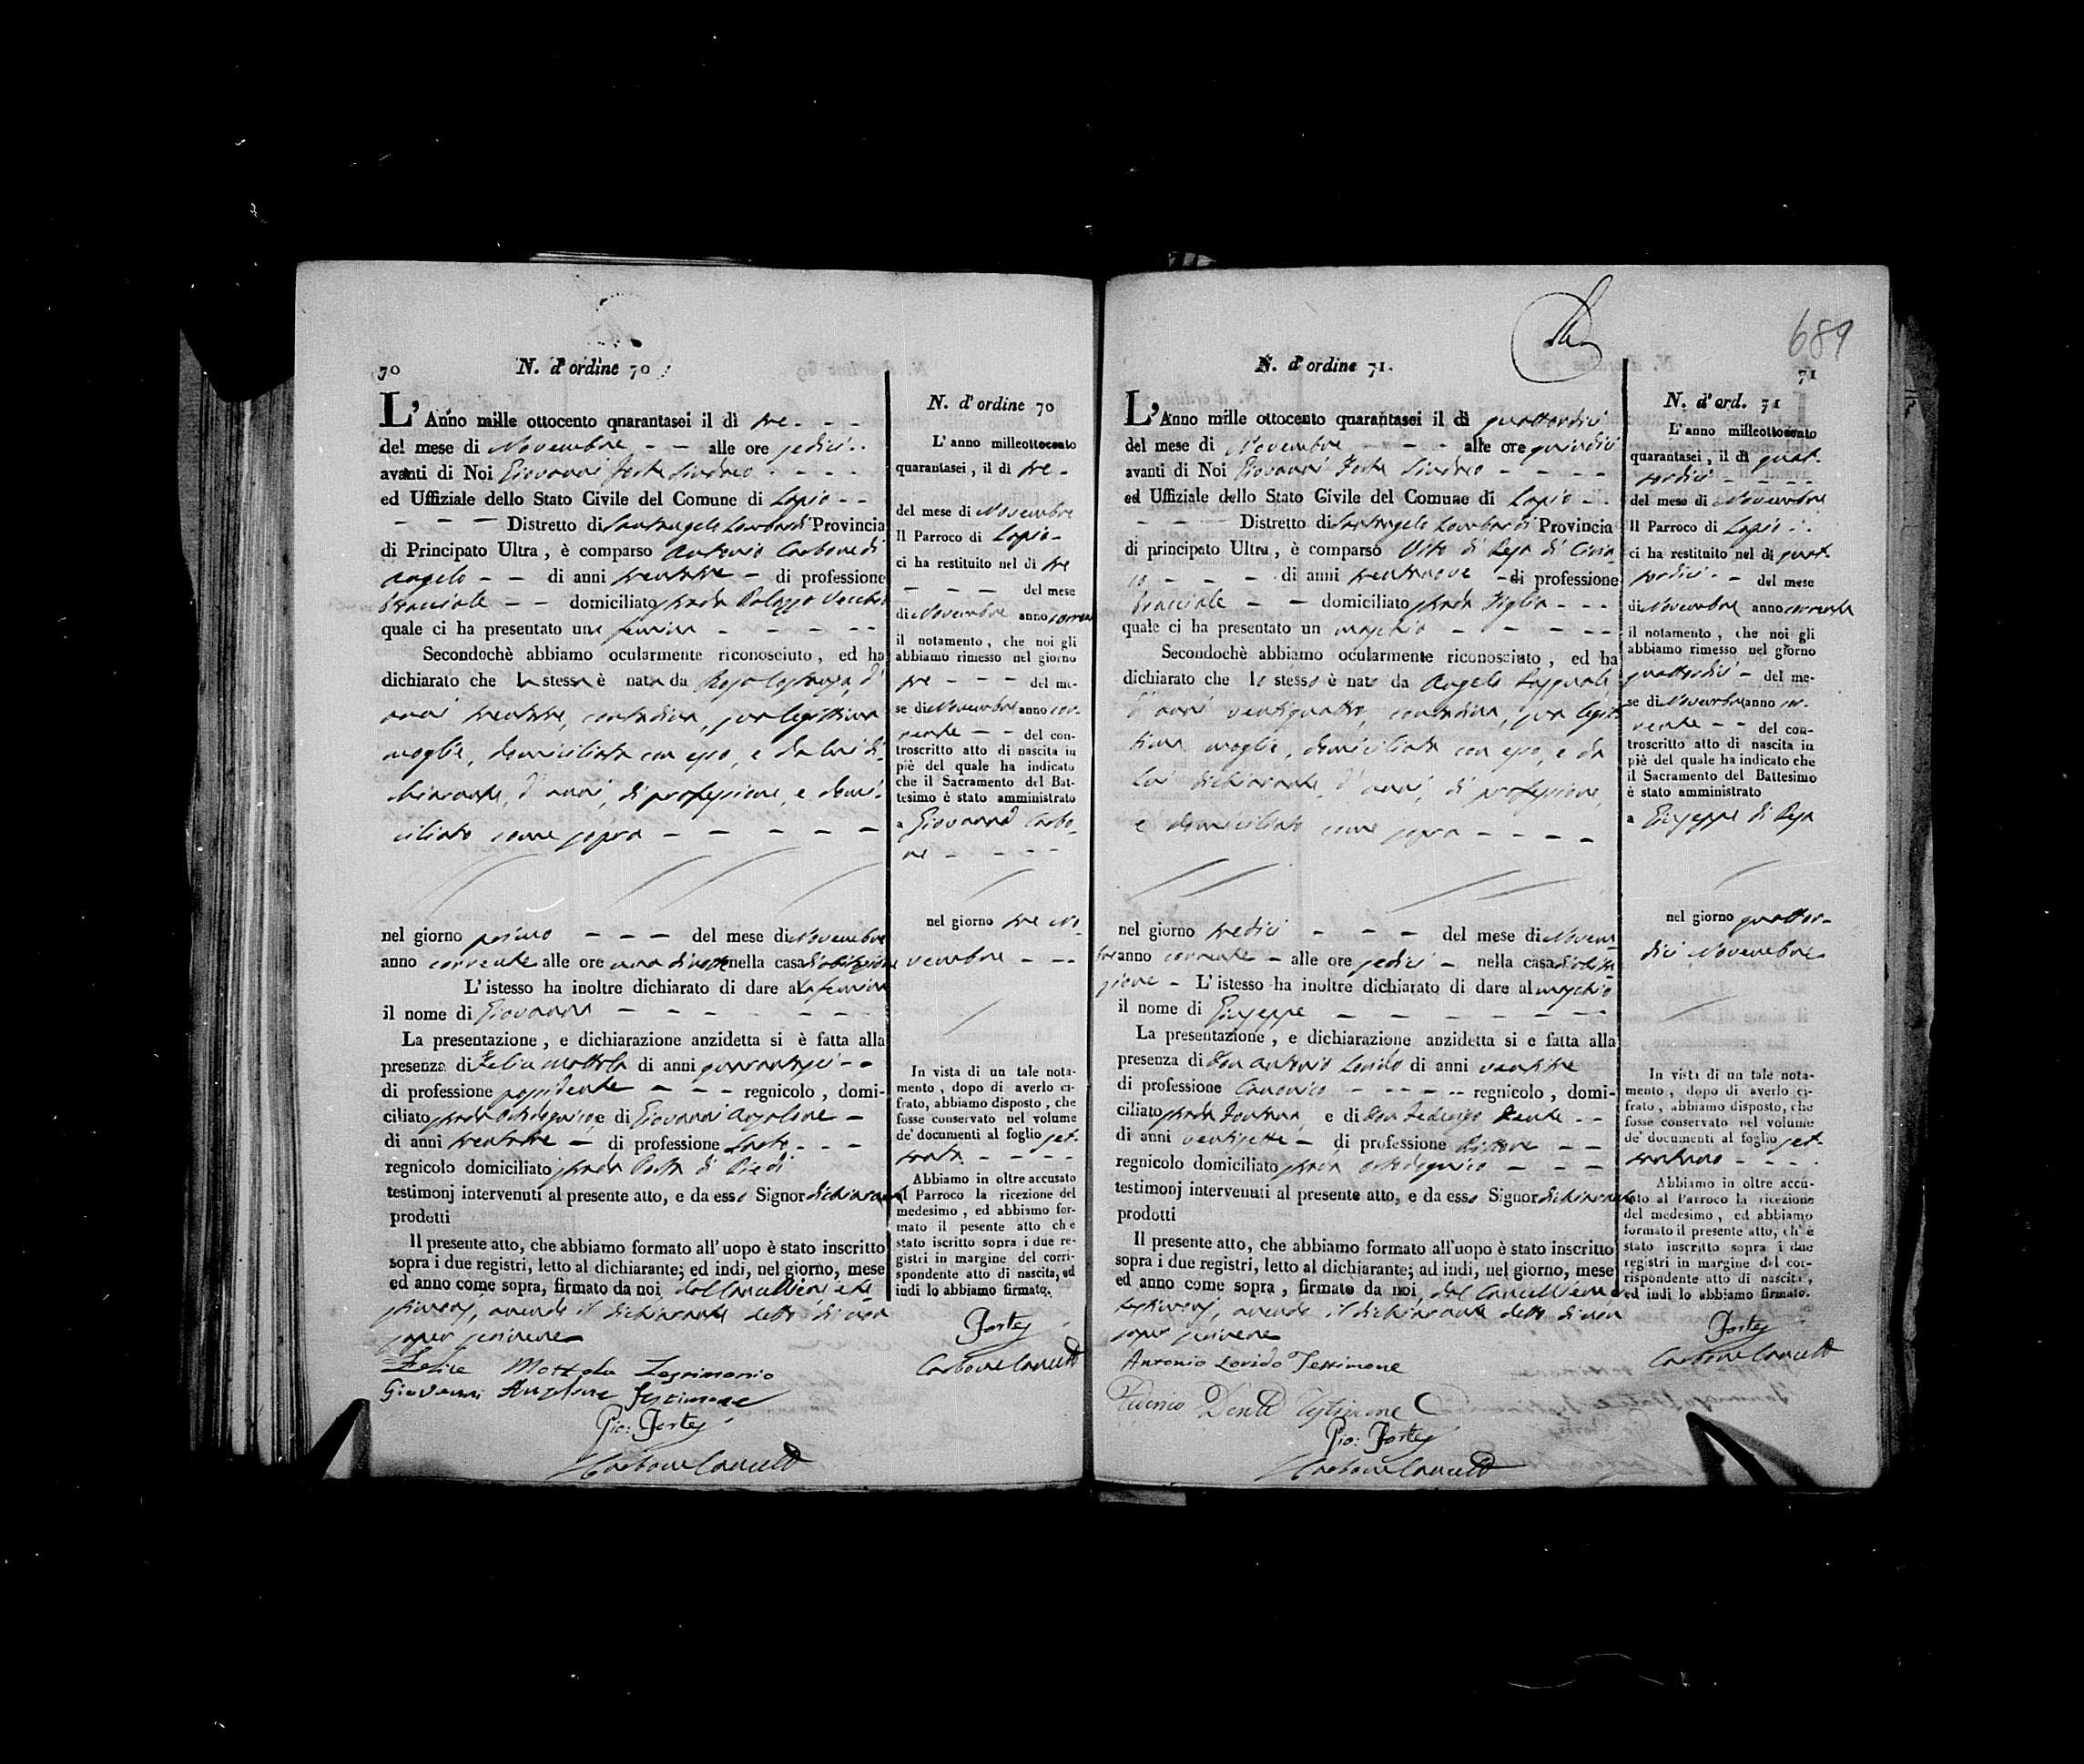 70 N. d'ordine 70
L'Anno mille ottocento quarantasei il dì tre
del mese di Novembre alle ore sedici
avanti di Noi Giovanni Forte Sindaco
ed Uffiziale dello Stato Civile del Comune di Lapio
Distretto di Santangelo Lombardi Provincia
di Principato Ultra, è comparso Antonio Carbone di
Angelo di anni trentatre di professione
bracciale domiciliato strada Palazzo Vecchio
quale ci ha presentato una femina
Secondochè abbiamo ocularmente riconosciuto, ed ha
dichiarato che la stessa è nata da Rosa
anni trentatre, contadina, sua legittima
moglie, domiciliata con esso, e da lui di-
chiarante, d'anni, di professione, e domi-
ciliato come sopra
nel giorno primo del mese di Novembre
anno corrente alle ore una di notte nella casa di abitazione
L'istesso ha inoltre dichiarato di dare alla femina
il nome di Giovanna
La presentazione, e dichiarazione anzidetta si è fatta alla
presenza di Felice Mottola di anni quarantasei
di professione possidente regnicolo, domi-
ciliato strada e di Giovanni Anzalone
di anni trentatre di professione Sarto
regnicolo domiciliato strada Porta di Piedi
testimonj intervenuti al presente atto, e da esso Signor dichiarante
prodotti
Il presente atto, che abbiamo formato all'uopo è stato inscritto
sopra i due registri, letto al dichiarante; ed indi, nel giorno, mese
ed anno come sopra, firmato da noi, dal Cancelliere, e te-
stimonj, avendo il dichiarante detto di non
saper scrivere
Felice Mottola Testimonio
Giovanni Anzalone Testimone
Gio: Forte
Carbone Cancell
N. d'ordine 70
L'anno milleottocento
quarantasei, il dì tre
del mese di Novembre
Il Parroco di Lapio
ci ha restituito nel dì tre
del mese
di Novembre anno corrente
il notamento, che noi gli
abbiamo rimesso nel giorno
tre del me-
se di Novembre anno cor-
rente del con-
troscritto atto di nascita in
piè del quale ha indicato
che il Sacramento del Bat-
tesimo è stato amministrato
a Giovanna Carbo-
ne
nel giorno tre No-
vembre
In vista di un tale nota-
mento, dopo di averlo ci-
frato, abbiamo disposto, che
fosse conservato nel volume
de' documenti al foglio set-
tanta
Abbiamo in oltre accusato
al Parroco la ricezione del
medesimo, ed abbiamo for-
mato il pesente atto che
stato iscritto sopra i due re-
gistri in margine del corri-
spondente atto di nascita, ed
indi lo abbiamo firmato.
Forte
Carbone Cancell
689
N. d'ordine 71.
71
L'Anno mille ottocento quarantasei il dì quattordici
del mese di Novembre alle ore quindici
avanti di Noi Giovanni Forte Sindaco
ed Uffiziale dello Stato Civile del Comune di Lapio
Distretto di Santangelo Lombardi Provincia
di principato Ultra, è comparso Vito di Reja di Ciria-
co di anni trentanove di professione
bracciale domiciliato strada Figlia
quale ci ha presentato un maschio
Secondochè abbiamo ocularmente riconosciuto, ed ha
dichiarato che lo stesso è nato da Angela Pasquale
d'anni ventiquattro, contadina, sua legit-
tima moglie, domiciliata con esso, e da
lui dichiarante, d'anni, di professione,
e domiciliato come sopra
nel giorno tredici del mese di Novem-
bre anno corrente alle ore sedici nella casa di abita-
zione L'istesso ha inoltre dichiarato di dare al maschio
il nome di Giuseppe
La presentazione, e dichiarazione anzidetta si è fatta alla
presenza di Don Antonio Lorido di anni ventitre
di professione Canonico regnicolo, domi-
ciliato strada Fontana e di Don Federigo Dente
di anni ventisette di professione
regnicolo domiciliato strada
testimonj intervenuti al presente atto, e da esso Signor dichiarante
prodotti
Il presente atto, che abbiamo formato all'uopo è stato inscritto
sopra i due registri, letto al dichiarante; ad indi, nel giorno, mese
ed anno come sopra, firmato da noi, dal Cancelliere e
testimonj, avendo il dichiarante detto di non
saper scrivere
Antonio Lorido Testimone
Federico Dente Testimone
Gio: Forte
Carbone Cancell
N. d'ord. 71
L'anno milleottocento
quarantasei, il dì quat-
tordici
del mese di Novembre
Il Parroco di Lapio
ci ha restituito nel dì quat-
tordici del mese
di Novembre anno corrente
il notamento, che noi gli
abbiamo rimesso nel giorno
quattordici del me-
se di Novembre anno cor-
rente del con-
troscritto atto di nascita in
piè del quale ha indicato che
il Sacramento del Battesimo
è stato amministrato
a Giuseppe di Reja
nel giorno quattor-
dici Novembre
In vista di un tale nota-
mento, dopo di averlo ci-
frato, abbiamo disposto, che
fosse conservato nel volume
de' documenti al foglio set-
tantuno
Abbiamo in oltre accu-
sato al Parroco la ricezione
del medesimo, ed abbiamo
formato il presente atto, ch' è
stato inscritto sopra i due
registri in margine del cor-
rispondente atto di nascita,
ed indi lo abbiamo firmato.
Forte
Carbone Cancell